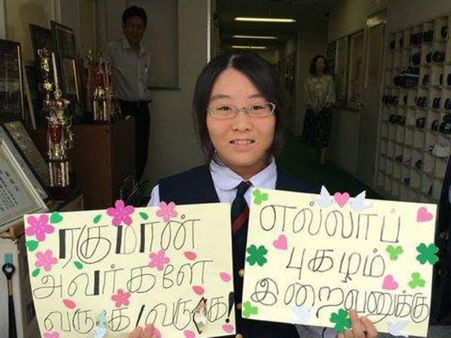 ரகுமான்
அவர்களே
வருக/வருக!
எல்லாப்
புகழும்
இறைவனுக்கு